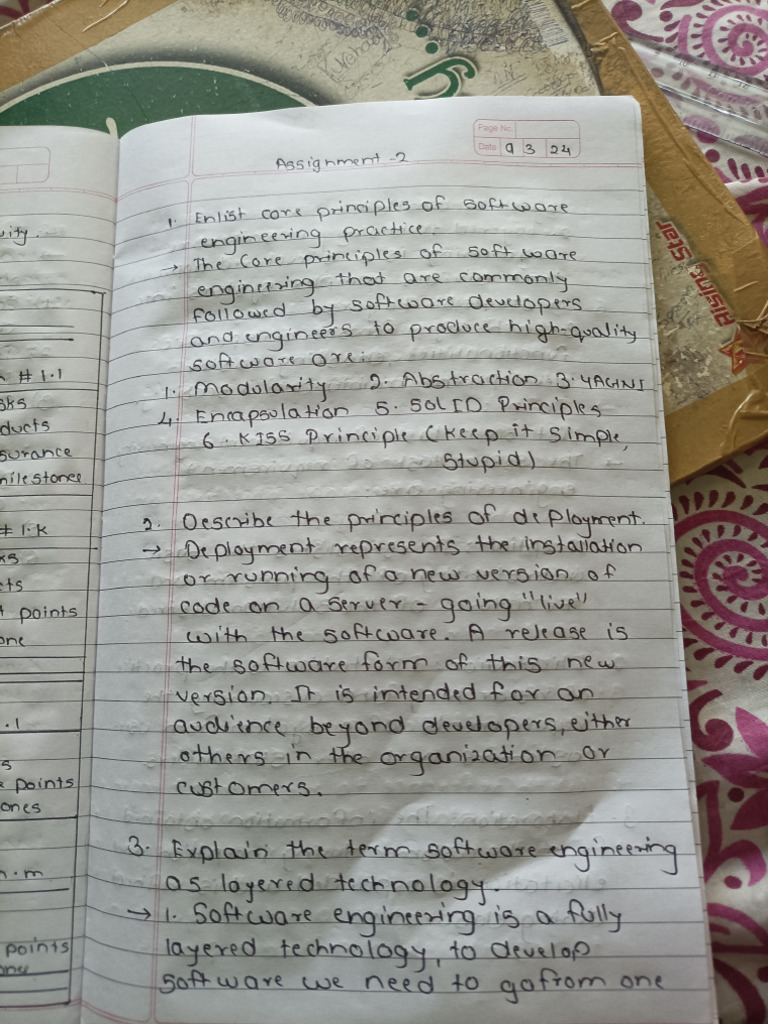 Page No.
Date 9 3 24
Assignment -2
1. Enlist core principles of software
engineering practice.
→ The Core principles of software
engineering that are commonly
followed by software developers
and engineers to produce high-quality
software are:
1. Modularity 2. Abstraction 3. YAGNI
4. Encapsulation 5. SOLID Principles
6. KISS Principle (Keep it Simple,
Stupid)
2. Describe the principles of deployment.
→ Deployment represents the installation
or running of a new version of
code on a server - going "live"
with the software. A release is
the software form of this new
version. It is intended for an
audience beyond developers, either
others in the organization or
customers.
3. Explain the term software engineering
as layered technology.
→ 1. Software engineering is a fully
layered technology, to develop
software we need to go from one
# 1.1
ducts
surance
milestones
# 1.k
points
.1
points
ones
n.m
points
Rising Star